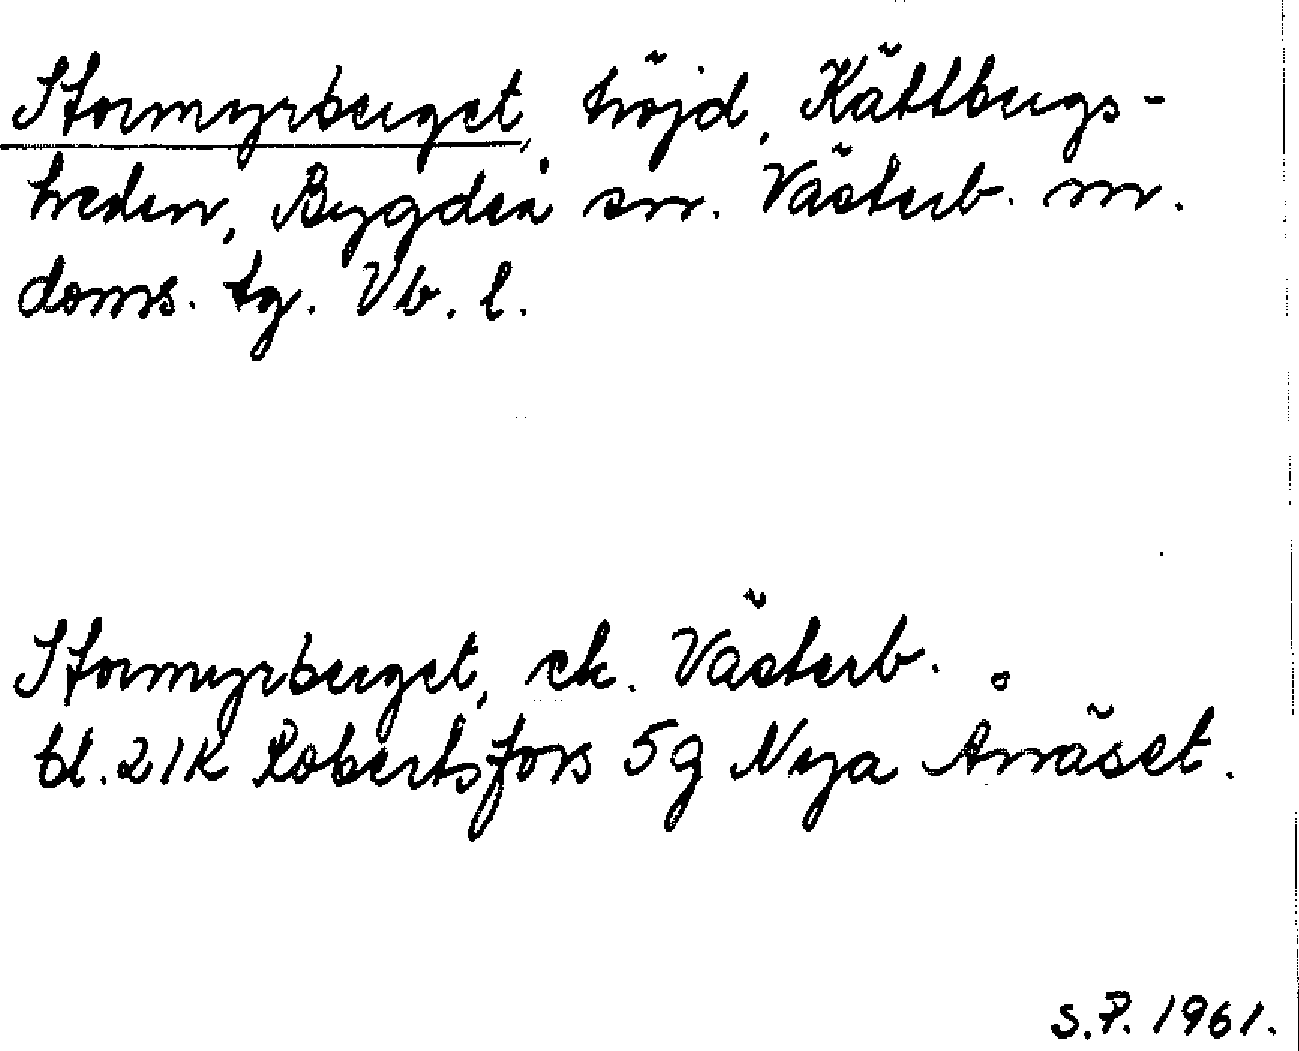 Stormyrberget, höjd, Kättbergs-
heden, Bygdeå sn. Västerb. n.
doms. tg. Vb. l.
Stormyrberget, ek. Västerb.
bl. 21K Robertsfors 5g Nya Ånäset.
S.P. 1961.